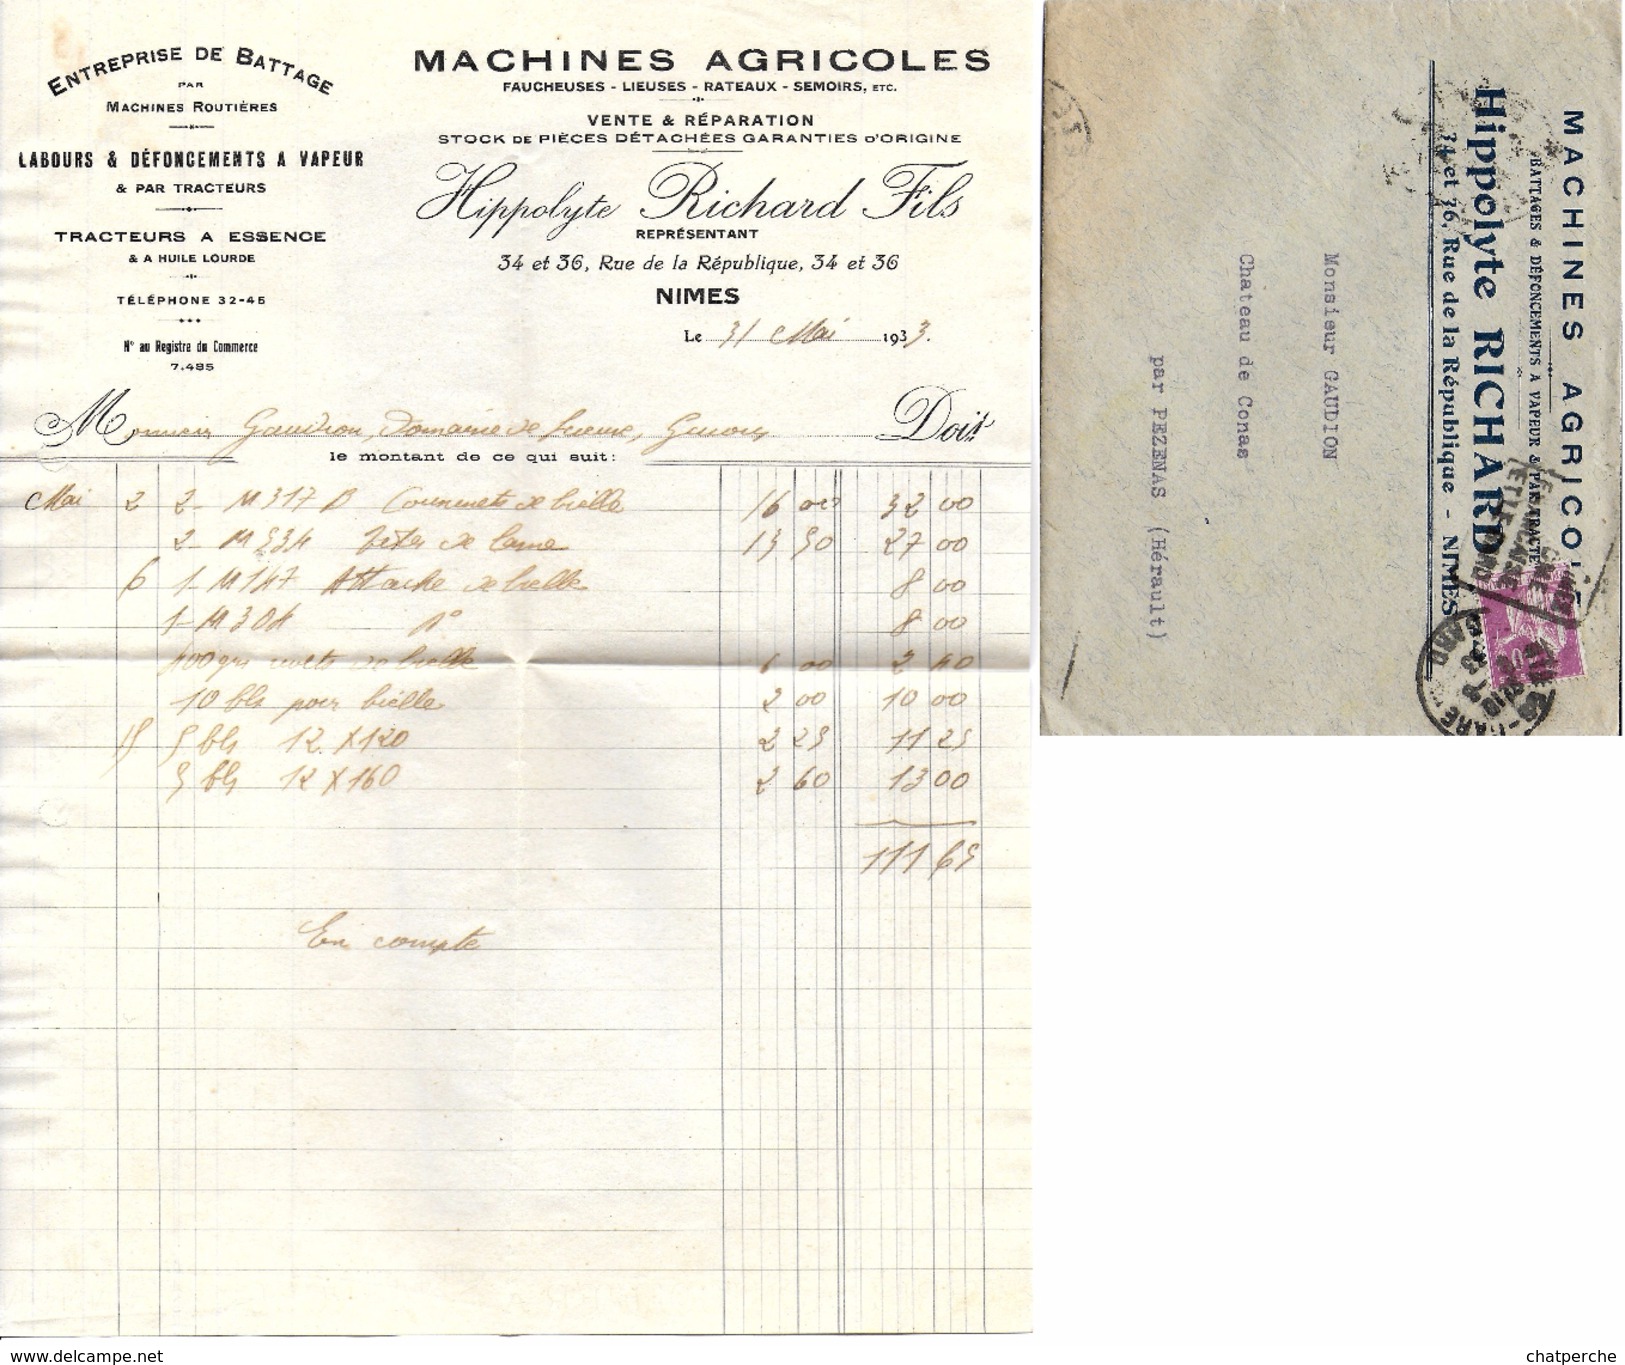 ENTREPRISE DE BATTAGE
PAR
MACHINES ROUTIÈRES
LABOURS & DÉFONCEMENTS A VAPEUR
& PAR TRACTEURS
TRACTEURS A ESSENCE
& A HUILE LOURDE
TÉLÉPHONE 32-45
N° au Registre du Commerce
7.485
MACHINES AGRICOLES
FAUCHEUSES - LIEUSES - RATEAUX - SEMOIRS, ETC.
VENTE & RÉPARATION
STOCK DE PIÈCES DÉTACHÉES GARANTIES D'ORIGINE
Hippolyte Richard Fils
REPRÉSENTANT
34 et 36, Rue de la République, 34 et 36
NIMES
Le 31 Mai 1933.
Monsieur Domaine de Doit
le montant de ce qui suit:
Mai 2 2- M 317 B de bielle 16 00 32 00
2- M 534 Têtes de lame 13 50 27 00
6 1- M 147 Attache de bielle 8 00
1- M 304 d° 8 00
400 grs rivets de bielle 6 00 2 40
10 bls pour bielle 2 00 10 00
15 5 bls 12 X 120 2 25 11 25
5 bls 12 X 160 2 60 13 00
111 65
En compte
MACHINES AGRICOLES
BATTAGES & DÉFONCEMENTS A VAPEUR & PAR TRACTEURS
Hippolyte RICHARD
34 et 36, Rue de la République - NIMES
Monsieur GAUDION
Chateau de Conas
par PEZENAS (Hérault)
www.delcampe.net
chatperche